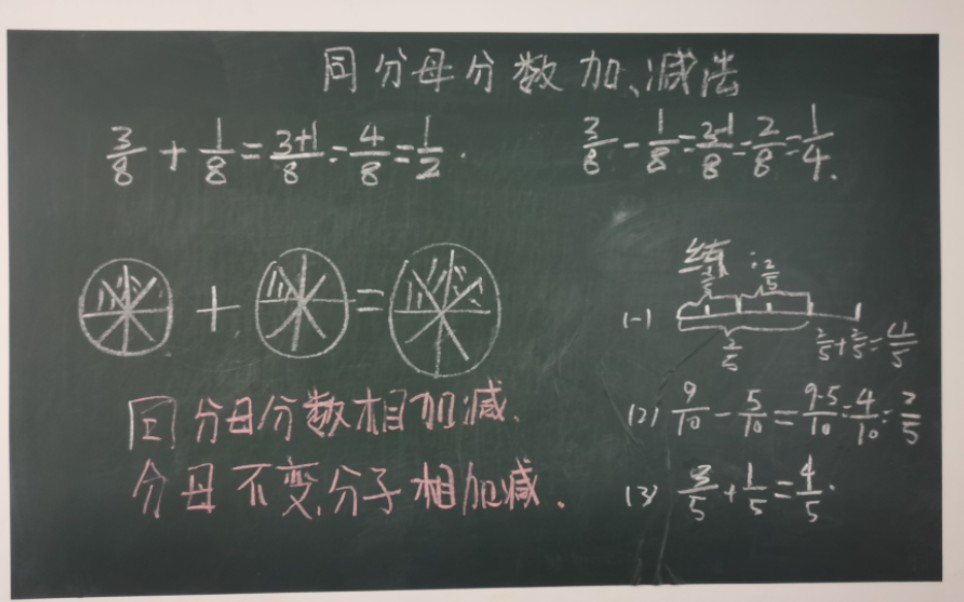 同分母分数加、减法
3/8 + 1/8 = 3+1/8 = 4/8 = 1/2.
3/8 - 1/8 = 3-1/8 = 2/8 = 1/4.
+ =
同分母分数相加减.
分母不变,分子相加减.
练:
2/5
(一)
2/5 + 2/5 = 4/5
(2) 9/10 - 5/10 = 9-5/10 = 4/10 = 2/5
(3) 3/5 + 1/5 = 4/5.